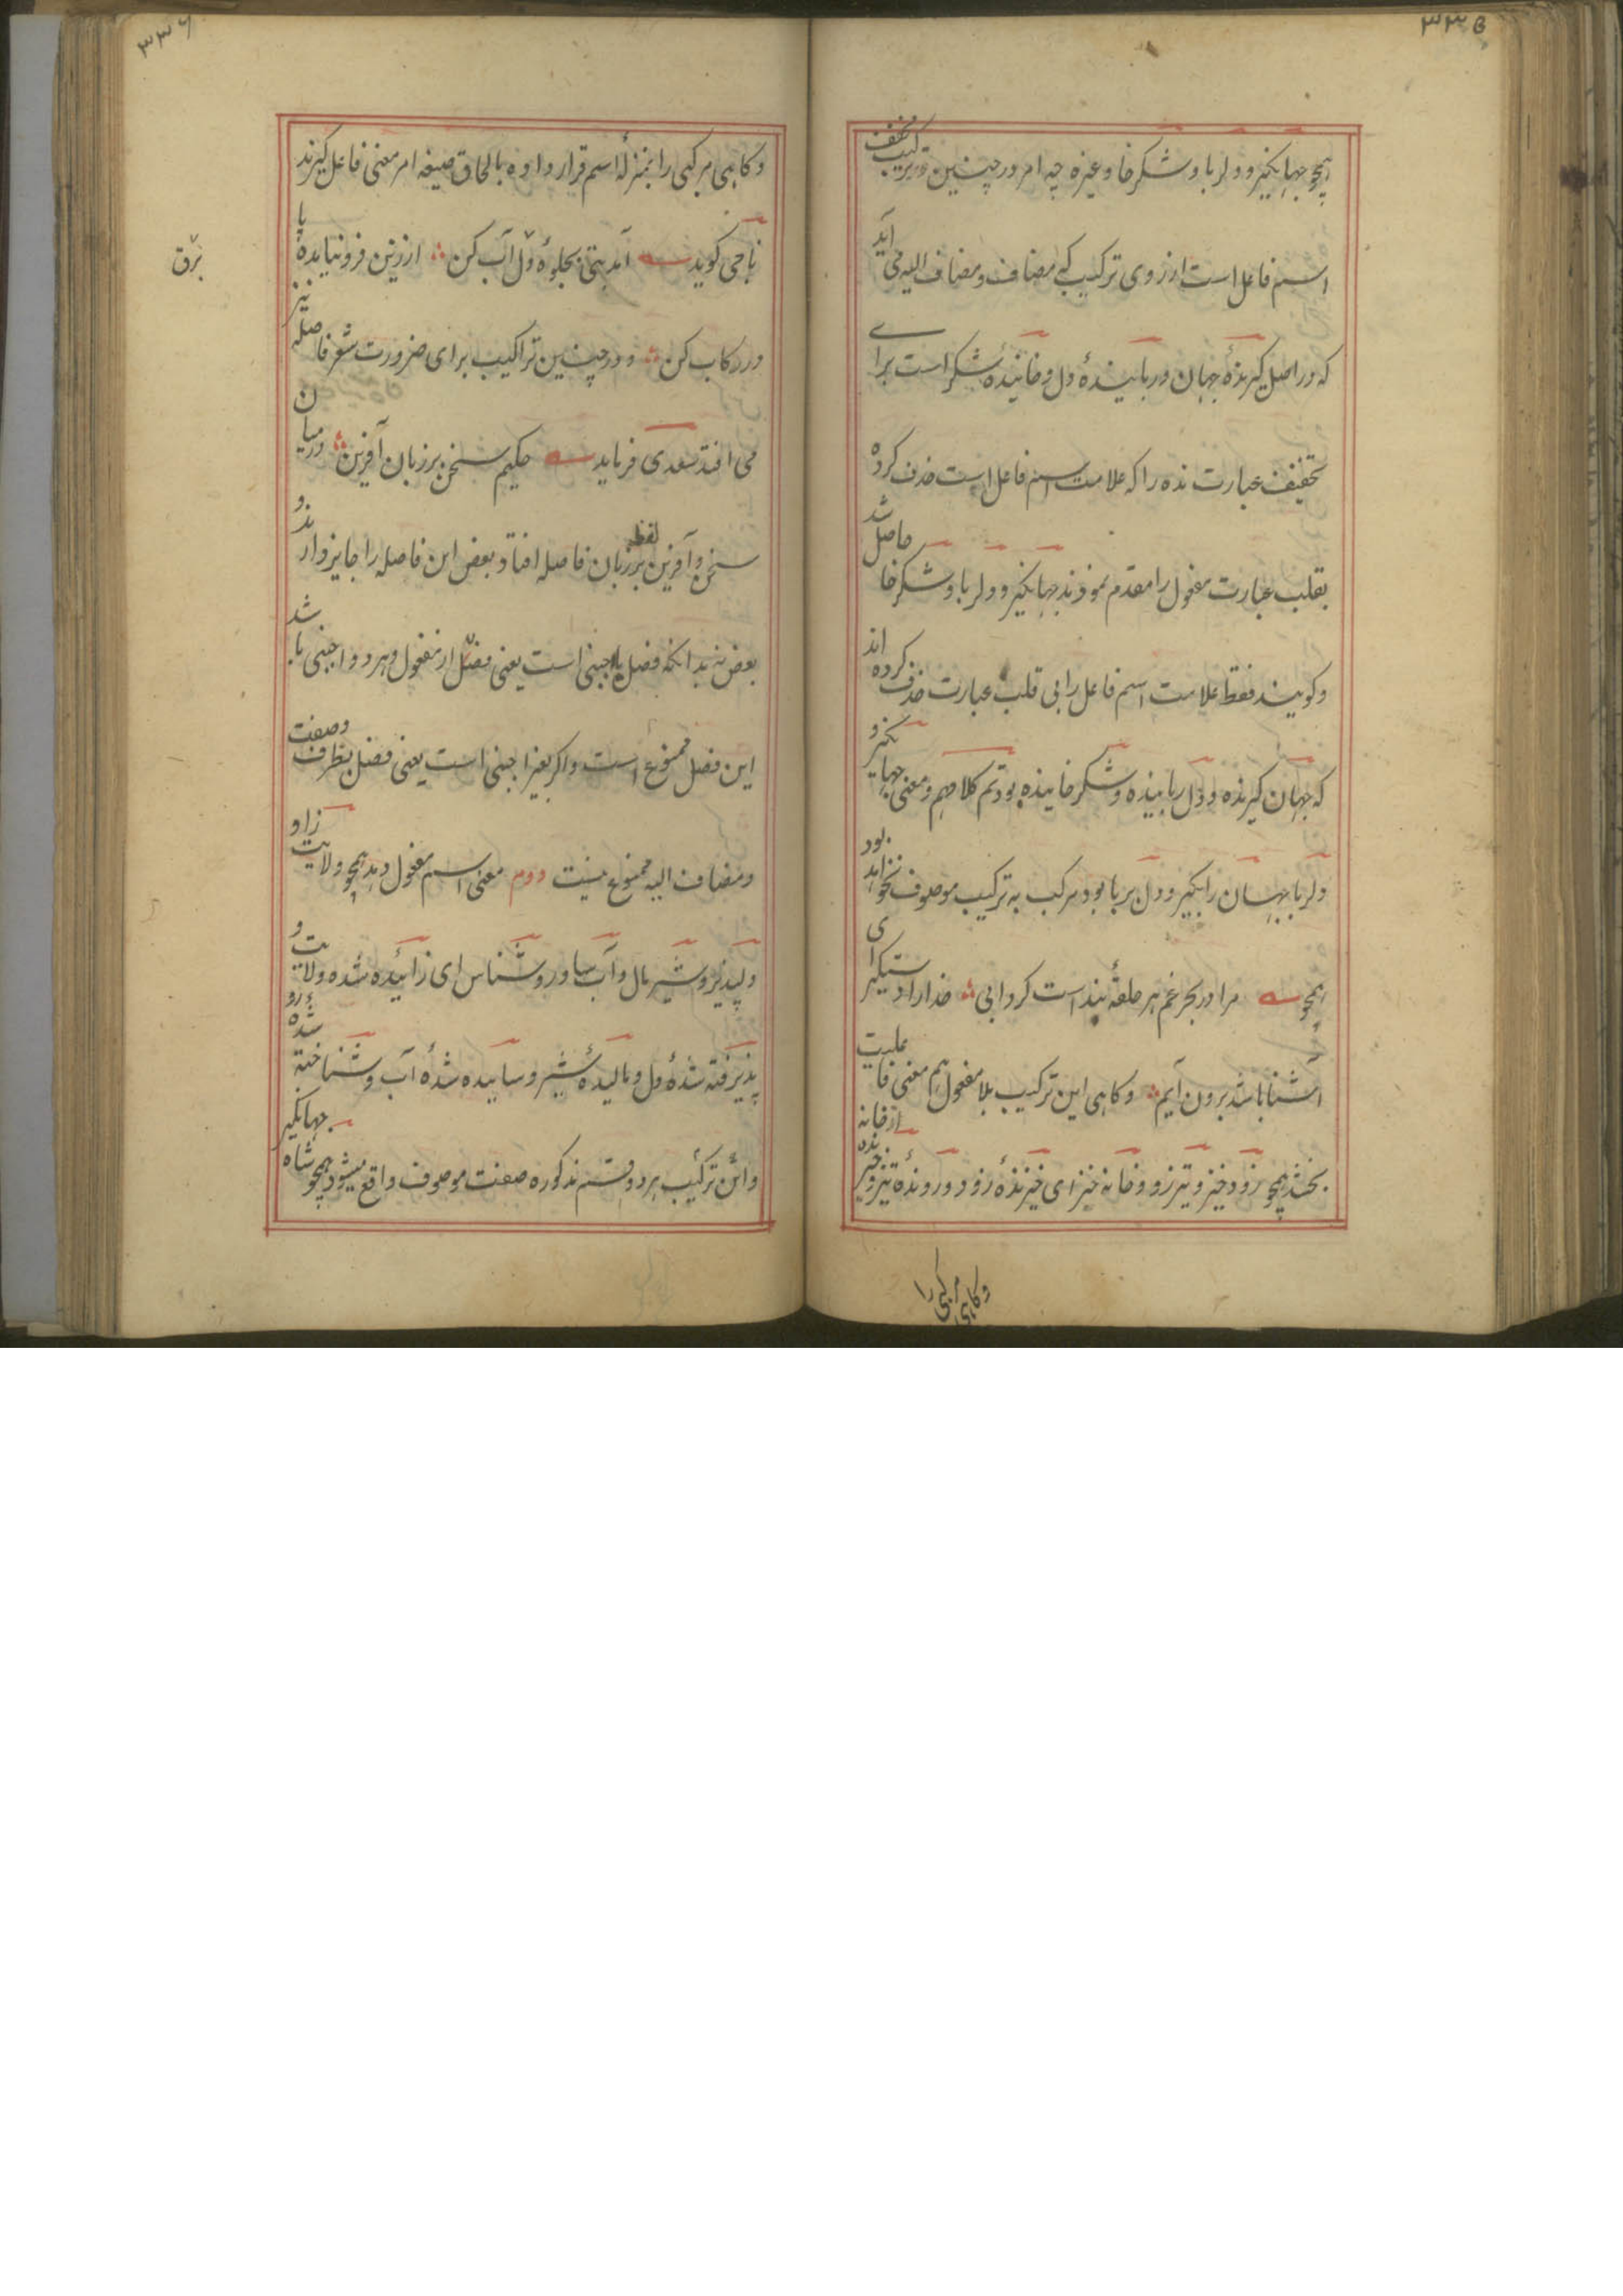 ۳۳۵
همچو جهانگیر و دلربا و شکرخا و غیره چه امر در چنین ترکیب مخفف
اسم فاعل است از روی ترکیب که مضاف و مضاف الیه می آید
که در اصل گیرندهٔ جهان و ربایندهٔ دل و خایندهٔ شکر است برای
تخفیف عبارت نده را که علامت اسم فاعل است حذف کرده
بقلب عبارت مفعول را مقدم نمودند جهانگیر و دلربا و شکرخا حاصل شد
و گویند فقط علامت اسم فاعل را بی قلب عبارت حذف کرده اند
که جهان گیرنده و دل رباینده و شکر خاینده بود تم کلامهم و معنی جهانگیر و
دلربا جهان را بگیر و دل بربا بود مرکب به ترکیب موصوف نخواهد بود
همچو مرا در بحر غم هر حلقهٔ بند است گردابی خدا را دستگیر ای
آشنا باشد برون آیم و گاهی این ترکیب بلا مفعول هم معنی فاعلیت
بخشد همچو زود خیز و تیز رو و خانه خیز ای خیزندهٔ زود و روندهٔ تیز و خیزنده از خانه
وگاهی مرکبی را
۳۳۶
و گاهی مرکبی را بمنزلهٔ اسم قرار داده بالحاق صیغه امر معنی فاعل گیرند
ناجی گوید آمد بتی بجلوهٔ دل آب کن از زین فرو نیاید پا
در رکاب کن و در چنین تراکیب برای ضرورت شعر فاصله نیز
می افتد سعدی فرماید حکیم سخن بر زبان آفرین در میان
سخن و آفرین لفظ بر زبان فاصله افتاد و بعض این فاصله را جایز دارند و
بعض نه بدانکه فصل باجنبی است یعنی فصل از مفعول و هر دو اجنبی باشد
این فصل ممنوع است و اگر بغیر اجنبی است یعنی فصل بظرف و صفت
و مضاف الیه ممنوع نیست دوم معنی اسم مفعول دهد همچو ولایت زاد و
دلپذیر و شیرمال و آب سا و روشناس ای زائیده شده ولایت و
پذیرفته شدهٔ دل و مالیدهٔ شیر و ساییده شدهٔ آب و شناخته شدهٔ رو
و این ترکیب هر دو قسم مذکوره صفت موصوف واقع میشود همچو شاه جهانگیر
برق